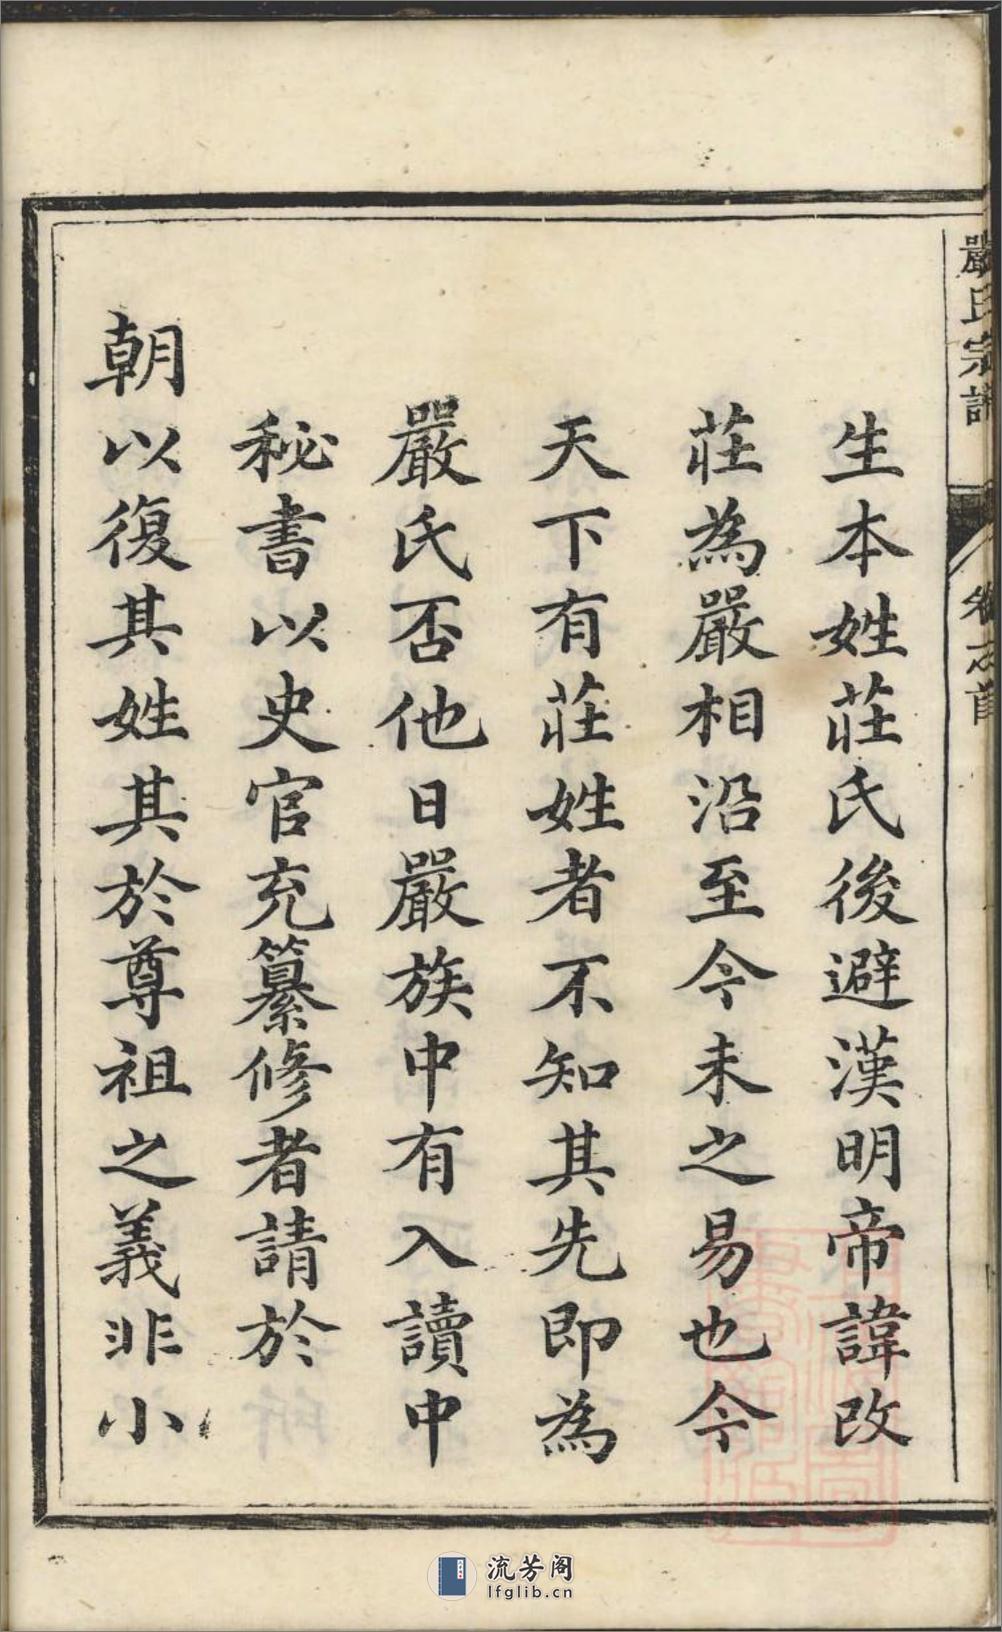 嚴氏宗譜
卷之首
生本姓莊氏後避漢明帝諱改
莊為嚴相沿至今未之易也今
天下有莊姓者不知其先即為
嚴氏否他日嚴族中有入讀中
秘書以史官充纂修者請於
朝以復其姓其於尊祖之義非小
流芳阁
lfglib.cn